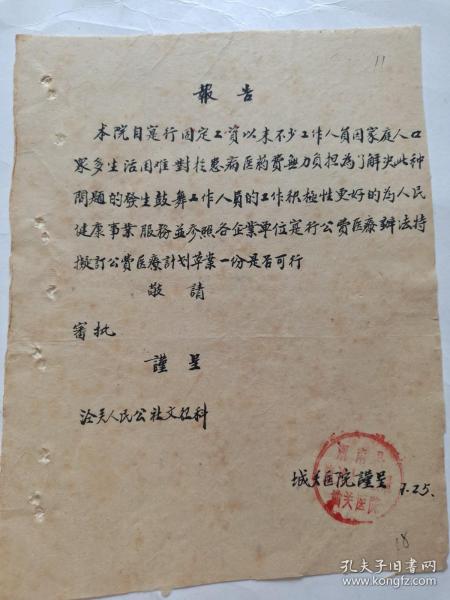 11
報告
本院自寔行固定工資以来不少工作人員因家庭人口
衆多生活困难對於患病医药费無力负担为了解决此种
問題的發生鼓舞工作人員的工作积極性更好的为人民
健康事業服務並参照各企業单位寔行公費医療辦法特
擬訂公費医療計划草案一份是否可行
敬請
審批
謹呈
人民公社文衛科
城关医院謹呈
7.25.
城关医院
18
孔夫子旧书网
www.kongfz.com